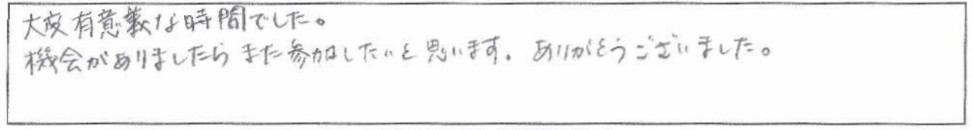 大変有意義な時間でした。
機会がありましたらまた参加したいと思います。ありがとうございました。